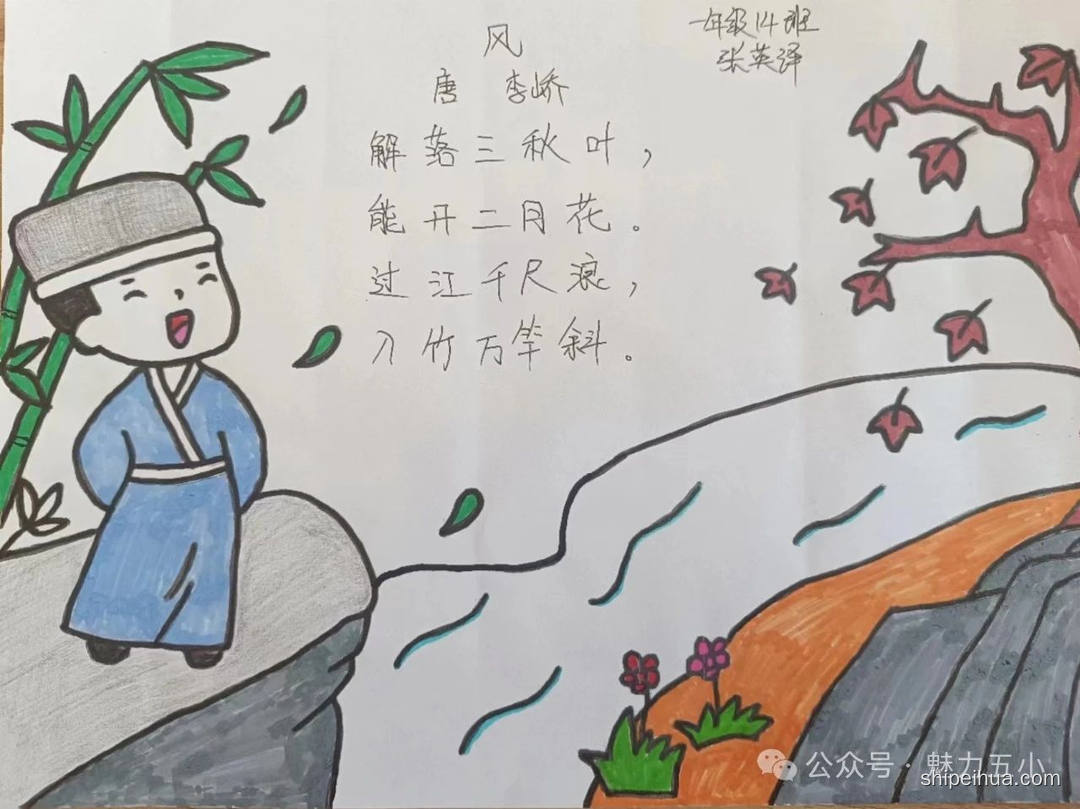 风
一年级14班
张英译
唐 李峤
解落三秋叶，
能开二月花。
过江千尺浪，
入竹万竿斜。
公众号·魅力五小
shipeihua.com